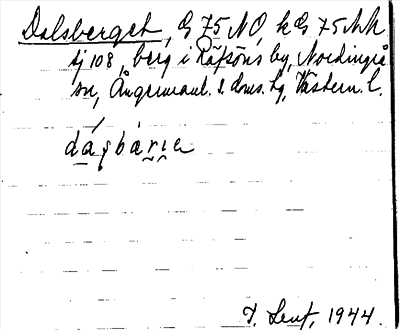 Dalsberget, G 75 NO, k G 75 NK
sj 108, berg i Räfsöns by, Nordingrå
sn, Ångermanl. s. doms. hg, Västern. l.
dágbárìe
1944.